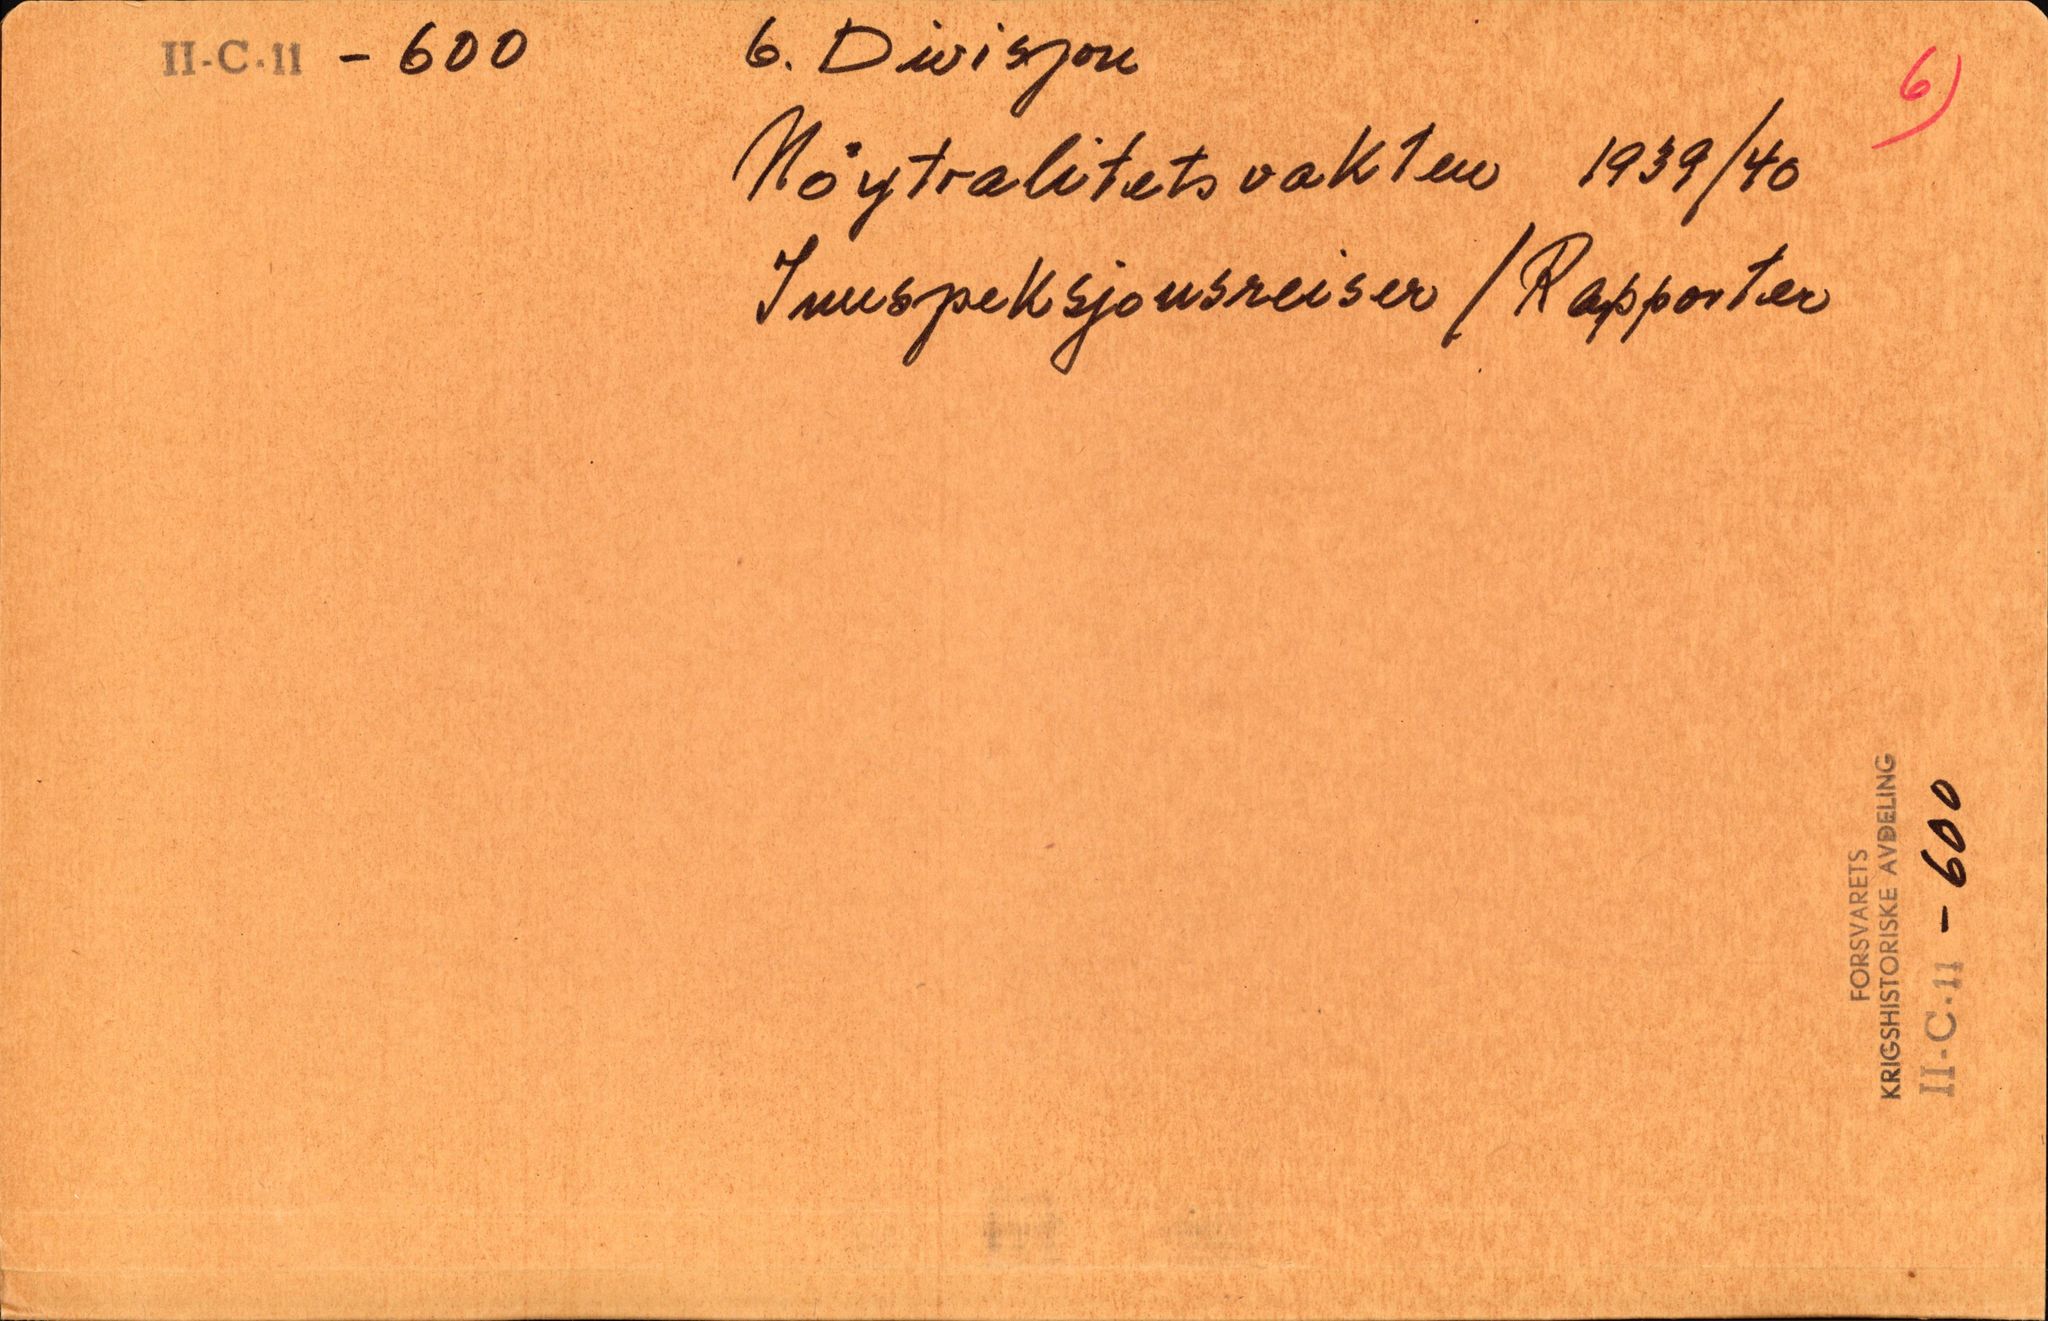 II-C-11 - 600
6. Divisjon
6)
Nöytralitetsvakten 1939/40
Innspeksjonsreiser / Rapporter
FORSVARETS
KRIGSHISTORISKE AVDELING
II-C-11 - 600